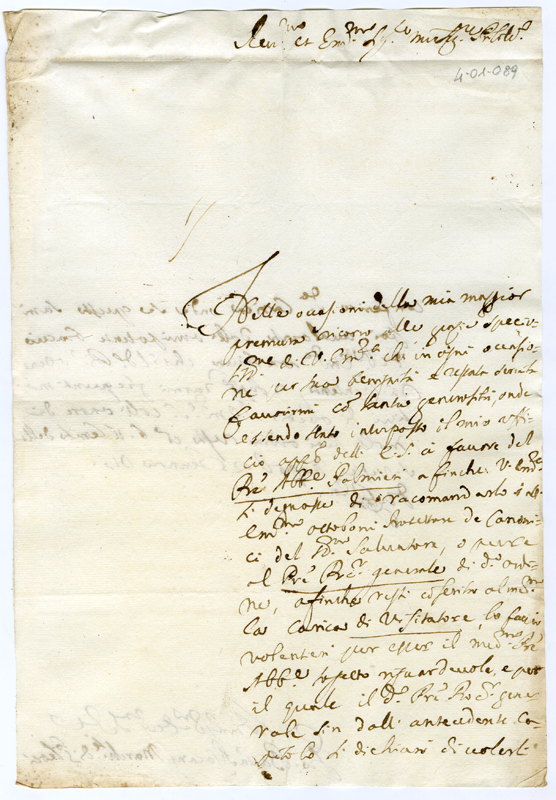 Rev.mo et Em.mo Sig.
4-01-089
Nelle occasioni della mia maggior
premura ricorro alle grazie specia-
di V. Em. che in ogni occasio-
ne per sua benignità è restata servita
favorirmi con tanta generosità, onde
essendo stato interposto il mio offi-
cio app. dell' E. S. a favore del
Pre Abb.e Palmieri affinche V. Em.
si degnasse di racomandarlo
Em.mo Ottoboni Protettore de Canoni-
ci del Salvatore, o pure
al Pre Pro.r generale di d.o ordi-
ne, affinche resti conferito al med.mo
la carica di Visitatore, lo faccio
volentieri per esser il med.mo Pre
Abb.e sogetto riguardevole, e per
il quale il d.o Pre Pro.r gene-
rale sin dall' antecedente Ca-
pitolo si dichiarò di volerl